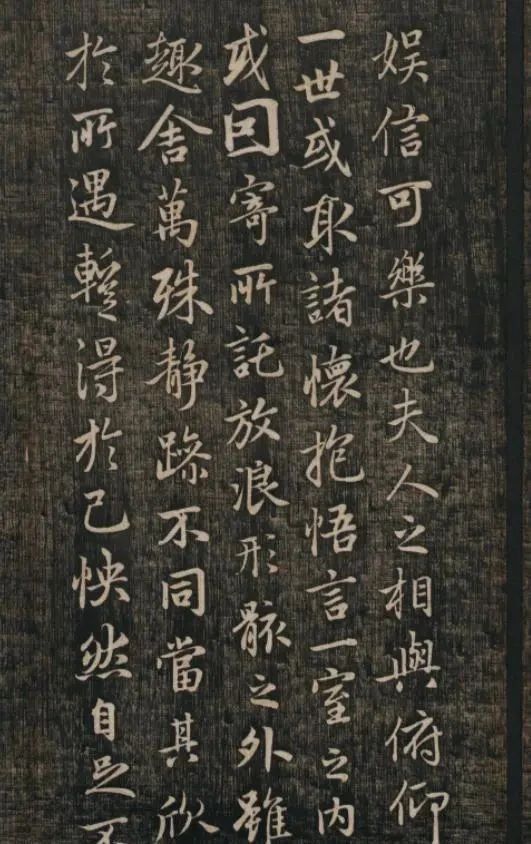 娛信可樂也夫人之相與俯仰
一世或取諸懷抱悟言一室之内
或因寄所託放浪形骸之外雖
趣舍萬殊静躁不同當其欣
於所遇蹔得於己怏然自足不